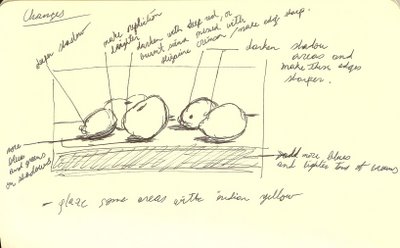 Changes
deeper shadow
make reflection
brighter
darken with deep red, or
burnt sina mixed with
alizarine crimson / make edge sharp.
darken shadow
areas and
make these edges
sharper.
more
blues
and greens
on shadows
more blues
and lighter tones of browns
- glaze some areas with indian yellow